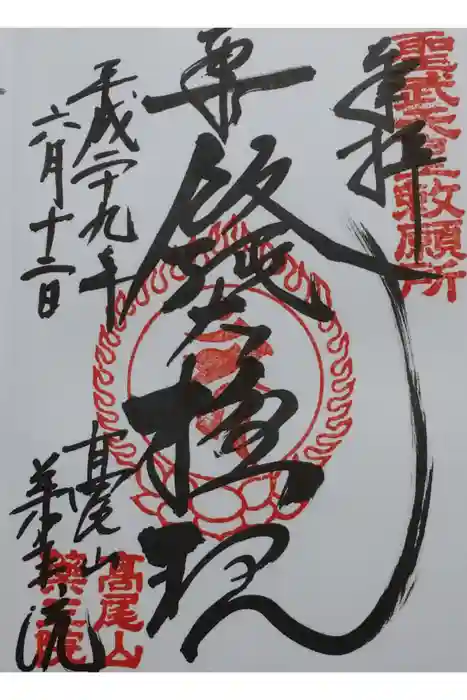 聖武天皇敕願所
奉拝
飯縄大権現
平成二十九年
六月十二日
髙尾山
薬王院
髙尾山
藥王院